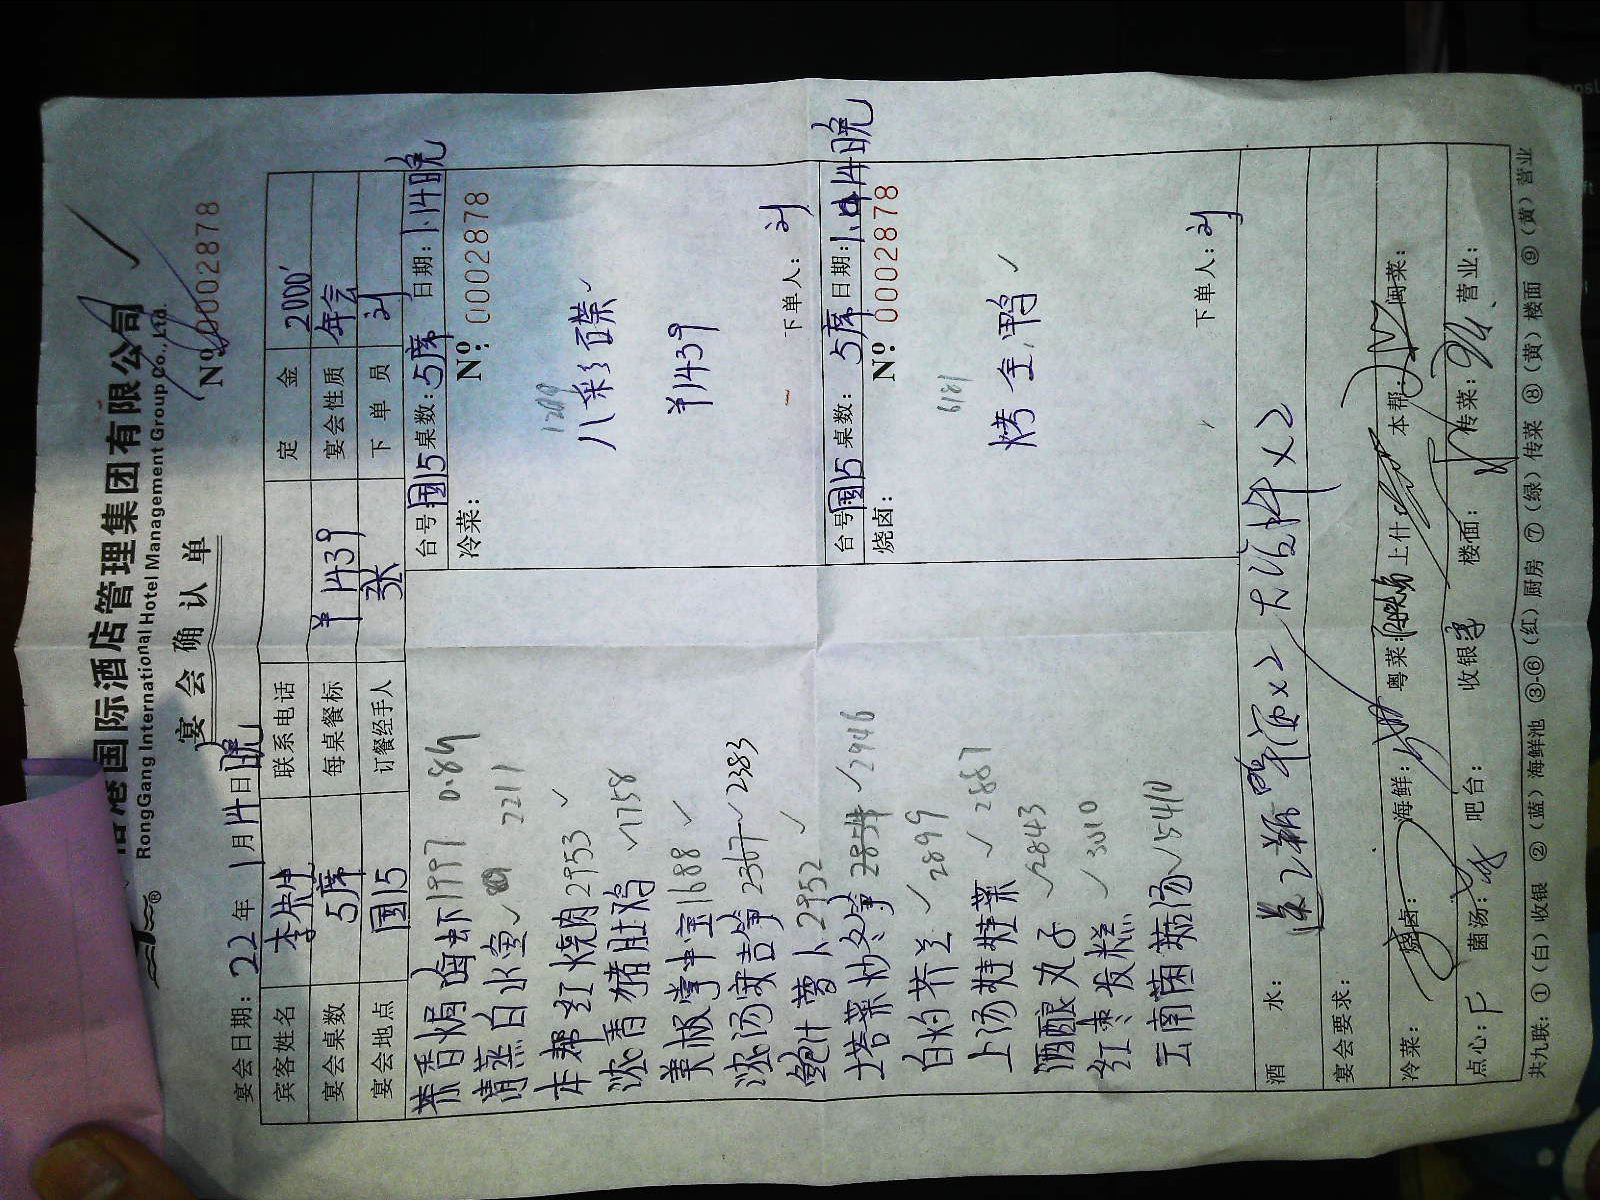 港国际酒店管理集团有限公司
RongGang International Hotel Management Group Co., Ltd.
宴会确认单
№ 0002878
宴会日期: 22 年 1 月 14 日 晚
宾客姓名 李先生 联系电话 定金 2000
宴会桌数 5席 每桌餐标 ¥1439 宴会性质 年会
宴会地点 国5 订餐经手人 张 下单员 刘
茶香焗卤虾 1997
清蒸白水鱼 ✓ 2211
本帮红烧肉 2953 ✓
浓香猪肚鸡 ✓ 1758
美极掌中宝 1688 ✓
浓汤窝吉笋 2367 ✓ 2383
鲍汁萝卜 2952 ✓
塔菜炒冬笋 2854 ✓ 2946
白灼芥兰 ✓ 2899
上汤娃娃菜 ✓ 2887
酒酿丸子 ✓ 2843
红枣发糕 ✓ 3010
云南菌菇汤 ✓ 5410
台号 国15 桌数: 5席 日期: 1.14晚
冷菜: № 0002878
1209
八彩百碟 ✓
¥1439
下单人: 刘
台号 国15 桌数: 5席 日期: 1.14晚
烧卤: № 0002878
6181
烤全鸭 ✓
下单人: 刘
酒水: 送2瓶 ×2 ×2
宴会要求:
冷菜: 烧卤: 海鲜: 粤菜: 上什 本帮: 闽菜:
点心: 菌汤: 吧台: 收银 楼面: 传菜: 营业:
共九联: ①(白)收银 ②(蓝)海鲜池 ③-⑥(红)厨房 ⑦(绿)传菜 ⑧(黄)楼面 ⑨(黄)营业